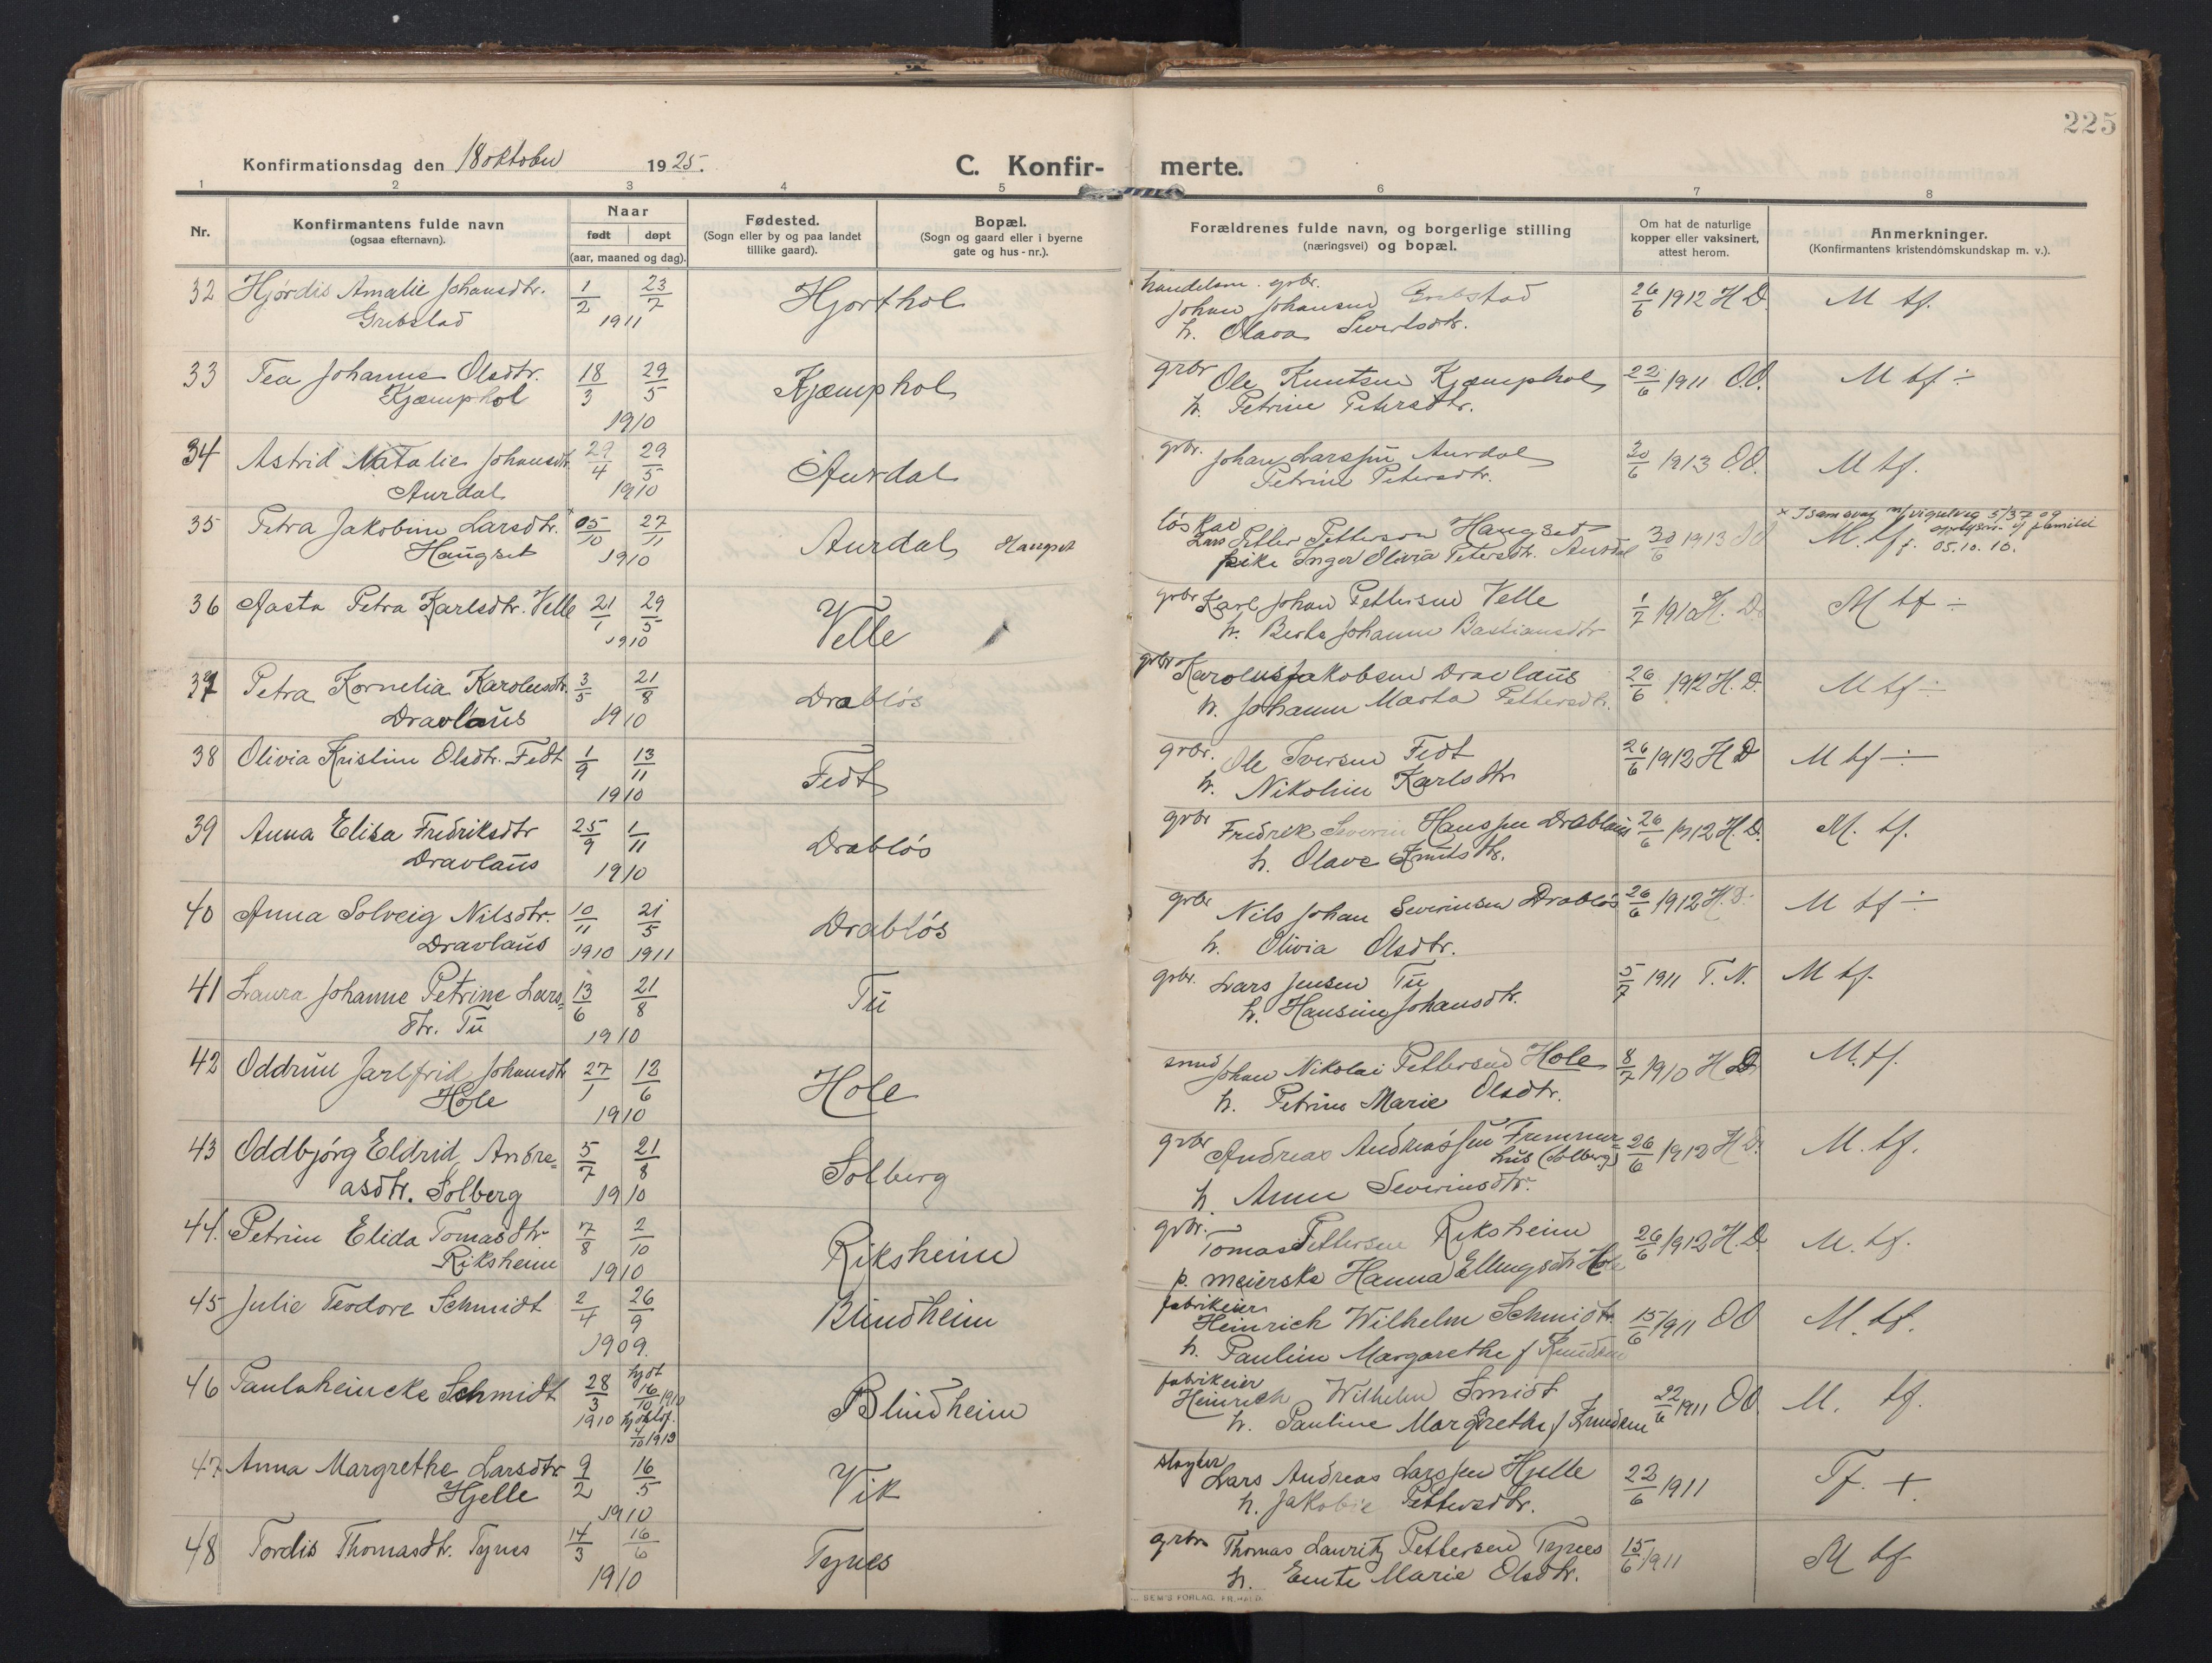 225
Konfirmationsdag den 18 oktober 1925.
C. Konfir- merte.
1 2 3 4 5 6 7 8
Nr.
Konfirmantens fulde navn
(ogsaa efternavn).
Naar
født døpt
(aar, maaned og dag).
Fødested.
(Sogn eller by og paa landet
tillike gaard).
Bopæl.
(Sogn og gaard eller i byerne
gate og hus-nr.).
Forældrenes fulde navn, og borgerlige stilling
(næringsvei) og bopæl.
Om hat de naturlige
kopper eller vaksinert,
attest herom.
Anmerkninger.
(Konfirmantens kristendómskundskap m. v.).
32 Hjørdis Amalie Johansdtr. 1/2 23/7 Hjorthol handelsm. grbr.
Gribstad 1911 Johan Johansen Gribstad 26/6 1912 H. D. M tf.
h. Olava Sivertsdtr.
33 Tea Johanne Olsdtr. 18/3 29/5 Kjæmphol grbr Ole Knutsen Kjæmphol 22/6 1911 O.O. M tf ÷
Kjæmphol 1910 h. Petrine Petersdtr.
34 Astrid Natalie Johansdtr. 29/4 29/5 Aurdal grbr. Johan Larssen Aurdal 30/6 1913 O.O. M tf.
Aurdal 1910 Petrine Petersdtr.
35 Petra Jakobine Larsdtr. × 05/10 27/11 Aurdal Haugset løskar
Haugset 1910 Lars Petter Petterson Haugset
pike Inger Olivia Petersdtr. Aurdal 30/6 1913 O.O. M. tf.
× I samsvar m/ vigselreg 5/37 og
opplysn. f familie
05.10.10.
36 Aasta Petra Karlsdtr. Velle 21/1 29/5 Velle grbr Karl Johan Pettersen Velle 1/7 1910 H. D. M tf ÷
1910 h. Berte Johanne Bastiansdtr
37 Petra Kornelia Karolusdtr. 3/5 21/8 Drabløs grbr Karolus Jakobsen Dravlaus 26/6 1912 H. D. M tf ÷
Dravlaus 1910 h. Johanne Marta Pettersdtr.
38 Olivia Kristine Olsdtr. Fedt 1/9 13/11 Fedt grbr. Ole Iversen Fedt 26/6 1912 H D M tf ÷
1910 h. Nikoline Karlsdtr
39 Anna Elisa Fredriksdtr 25/9 1/11 Drabløs grbr Fredrik Severin Hanssen Drablaus 26/6 1912 H. D. M. tf.
Dravlaus 1910 h. Olave Knutsdtr.
40 Anna Solveig Nilsdtr. 10/11 21/5 Drabløs grbr Nils Johan Severinsen Drabløs 26/6 1912 H. D. M tf ÷
Dravlaus 1910 1911 h. Olivia Olsdtr.
41 Laura Johanne Petrine Lars- 13/6 21/8 Tu grbr. Lars Jensen Tu 5/7 1911 T. N. M tf.
dtr. Tu 1910 h. Hansine Johansdtr.
42 Oddrun Jarlfrid Johansdtr 27/1 12/6 Hole smed Johan Nikolai Pettersen Hole 8/7 1910 H D M. tf.
Hole 1910 h. Petrine Marie Olsdtr.
43 Oddbjørg Eldrid Andre- 5/7 21/8 Solberg grbr Andreas Andreassen Fremmer-
asdtr. Solberg 1910 hus (Solberg) 26/6 1912 H D. M. tf.
h. Anne Severinsdtr.
44. Petrine Elida Tomasdtr 7/8 2/10 Riksheim grbr. Tomas Pettersen Riksheim 26/6 1912 H. D. M. tf.
Riksheim 1910 p. meierske Hanna Ellingsdtr Hole
45 Julie Teodore Schmidt 2/4 26/9 Blindheim fabrikeier
1909. Heinrich Wilhelm Schmidt 15/6 1911 O O M. tf.
h. Pauline Margarethe f Knudsen
46 Paulaheincke Schmidt 28/3 1910 hjdt 16/10 1910 Blindheim fabrikeier
hjdt stadf. 4/10 1913 Heinrich Wilhelm Smidt 22/6 1911 O O. M. tf.
h. Pauline Margrethe f Knudsen
47 Anna Margrethe Larsdtr 9/2 16/5 Vik slagter
Hjelle 1910 Lars Andreas Larssen Hjelle 22/6 1911 Tf. +
h. Jakobie Pettersdtr.
48 Tordis Thomasdtr. Tynes 14/3 16/6 Tynes grbr Thomas Lauritz Pettersen Tynes 15/6 1911 M tf
1910 h. Emte Marie Olsdtr.
SEM'S FORLAG, FR.HALD.